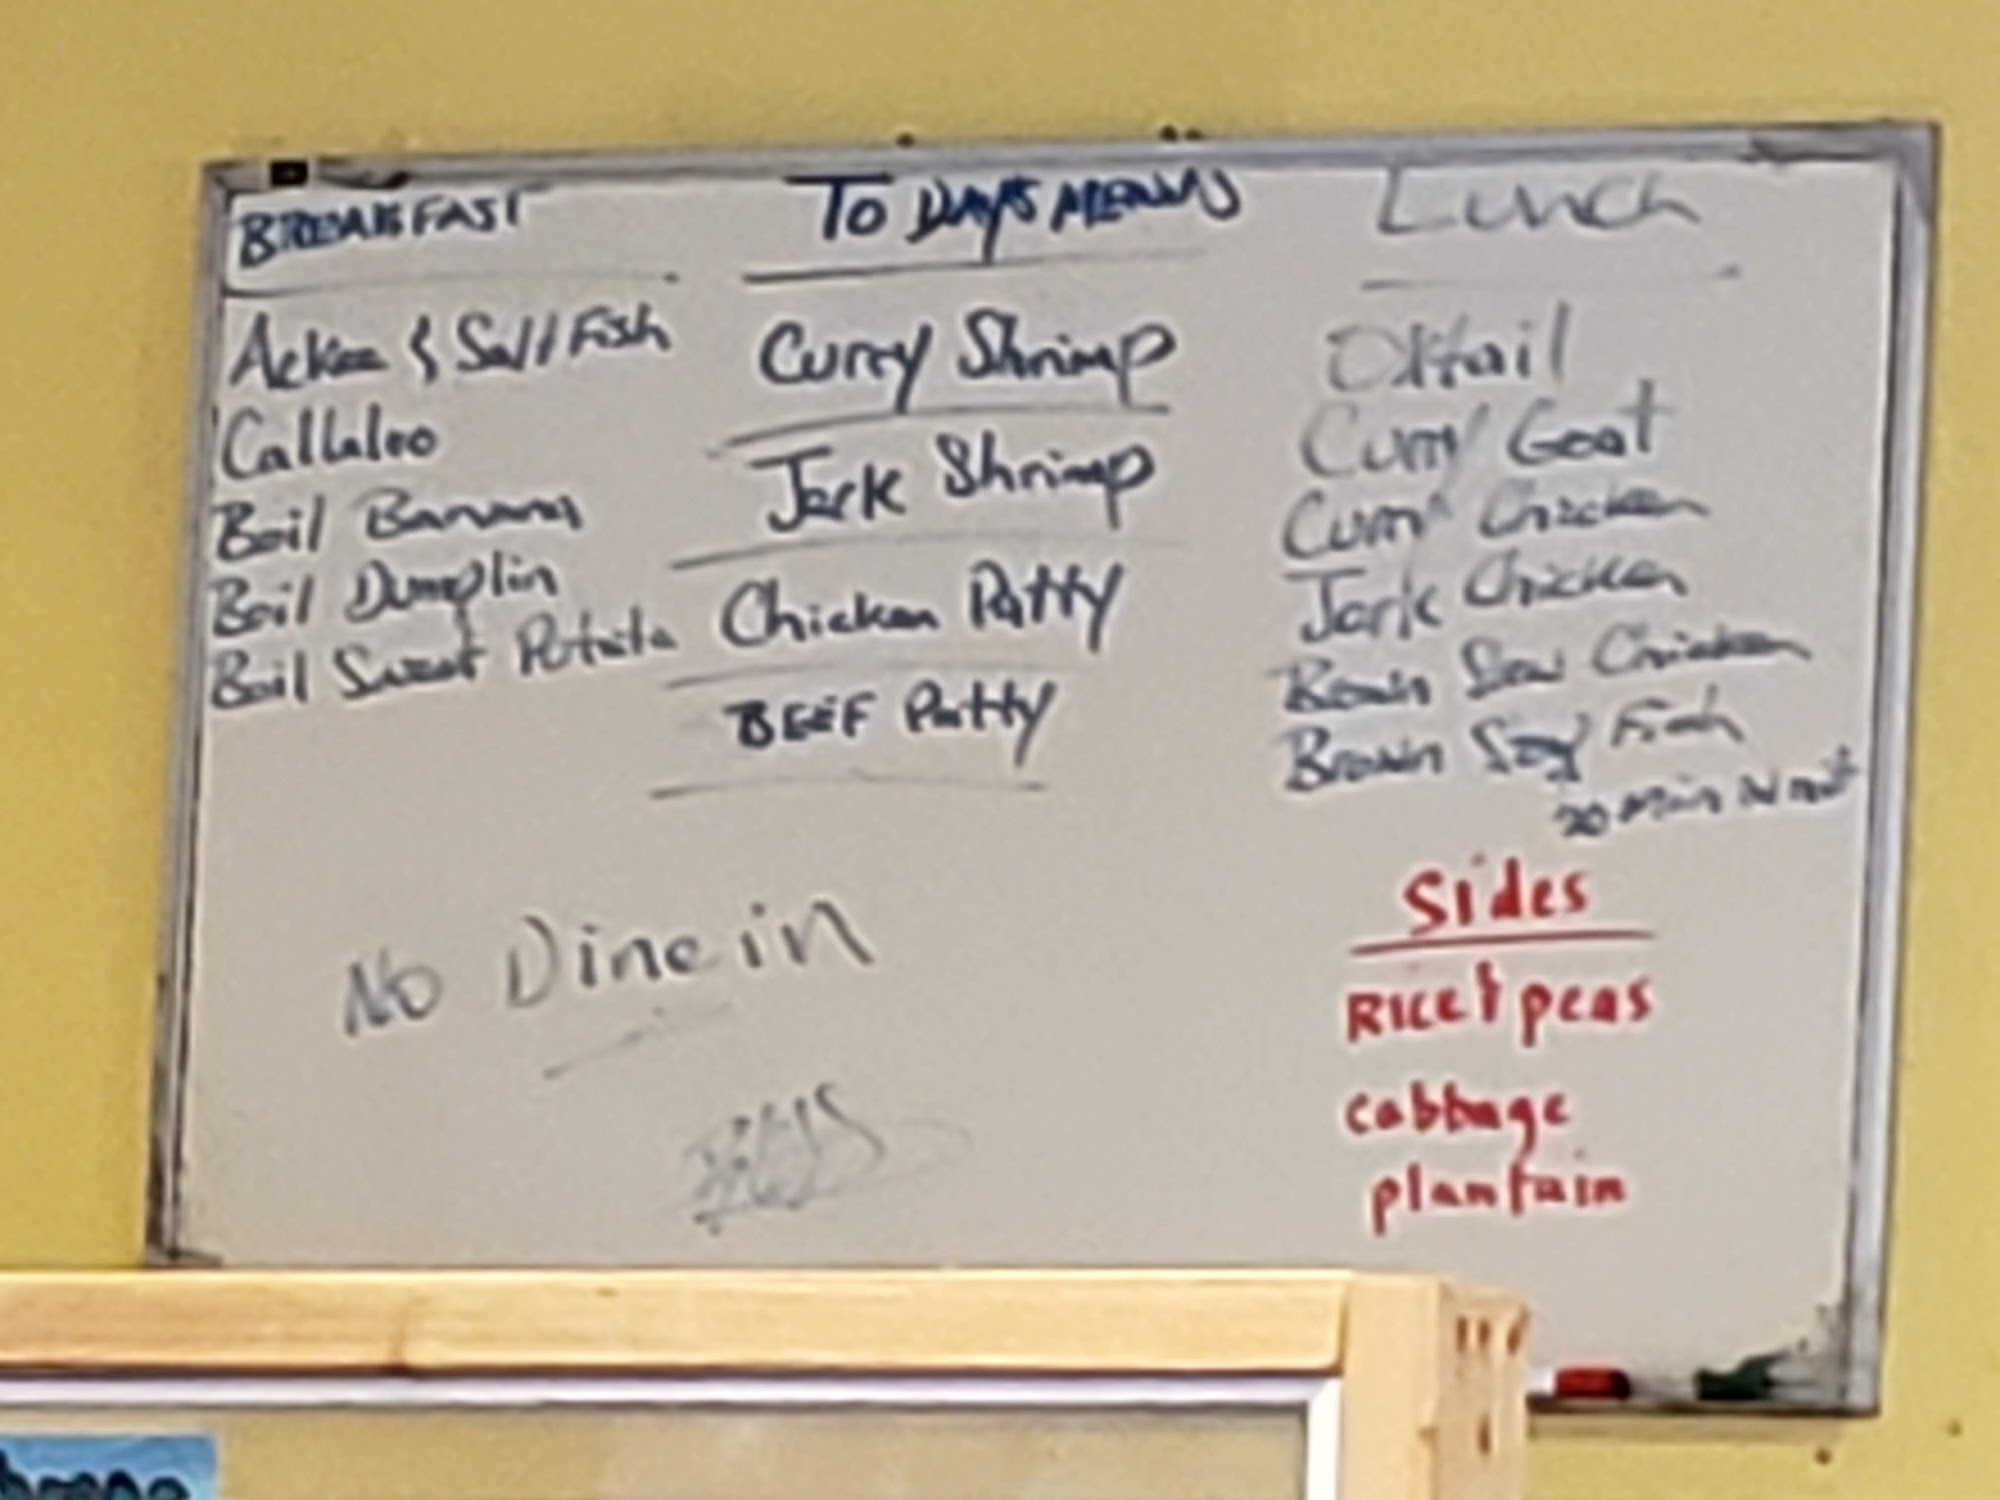 BREAKFAST
Ackee & Salt Fish
Callaloo
Boil Banana
Boil Dumplin
Boil Sweet Potato
To DAYS MENUS
Curry Shrimp
Jerk Shrimp
Chicken Patty
BEEF Patty
No Dine in
Lunch
Oxtail
Curry Goat
Curry Chicken
Jerk Chicken
Brown Stew Chicken
Brown Stew Fish
20 Min Wait
Sides
Rice & peas
cabbage
plantain